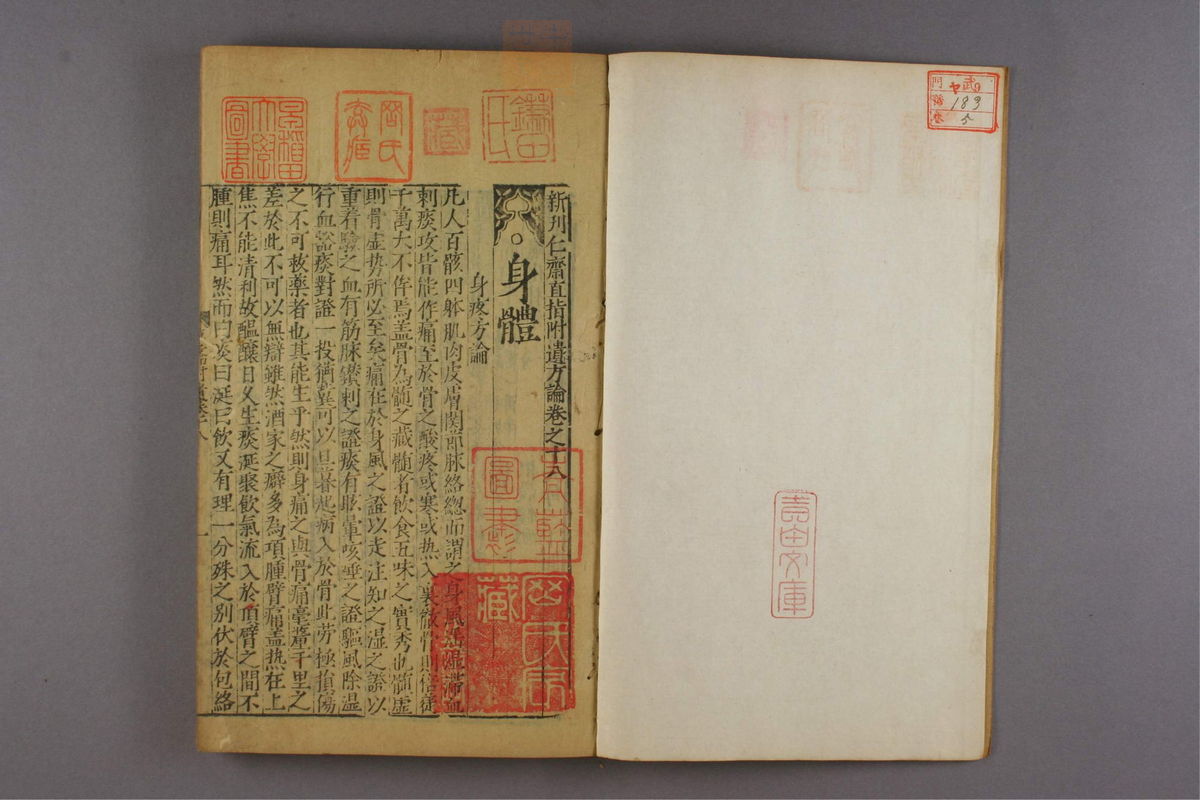 武
ヤ
門
號
183
卷
5
青田文庫
新刋仁齋直指附遺方論卷之十八
身體
身疼方論
凡人百骸四躰肌肉皮膚関節脉絡總而謂之身風
刺痰攻皆能作痛至於骨之酸疼或寒或热入裏徹骨則倍徒
千萬大不侔焉盖骨為髓之藏髓者飲食五味之實秀也髓虛
則骨虛势所必至矣痛在於身風之證以走注知之湿之證以
重着驗之血有筋脉鑽刺之證痰有眩暈咳唾之證驅風除湿
行血豁痰對證一投猶異可以立起病入於骨此劳極損傷
之不可救藥者也其能生乎然則身痛之與骨痛毫釐千里之
差於此不可以無辯雖然酒家之癖多為項腫臂痛盖热在上
焦不能清利故醖釀日久生痰涎聚飲氣流入於項臂之間不
腫則痛耳然而曰痰曰涎曰飲又有理一分殊之别伏於包絡
一
圖書
藏
圖書
藏